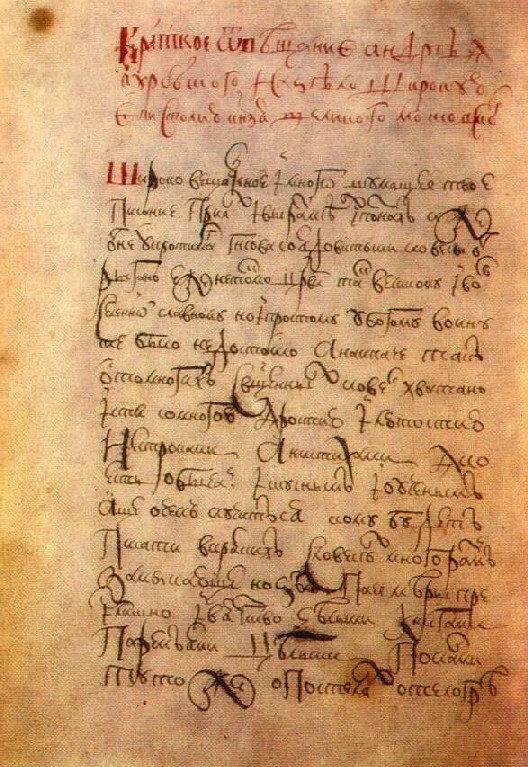 Краткое ѿвѣщание андрѣя
курбъского на зѣло широкую
епистолию кнзя великого московъ
Широковещателное и многошумящее твое
писание приях и выразумѣх и познах иже ѿ
 неукротимаго гнѣва со ядовитыми словесы ѿ
рыгано еже не токмо цреви так великому и во
вселеннои славному но и простому убогому воину
 было недостоино а наипаче так
ѿ многих священных словес хватано
и те со многою яростию и лютостию
ни строками а ни стихами яко
есть обычаи искусным и ученым
аще о чем случитъся кому будетъ
писати въ кратъких словесех мног разум
замыкающе но зѣло паче мѣры пре
излишно и звягливо целыми книгами
паремъями целыми посланми
туто же о постелях о телогрѣ